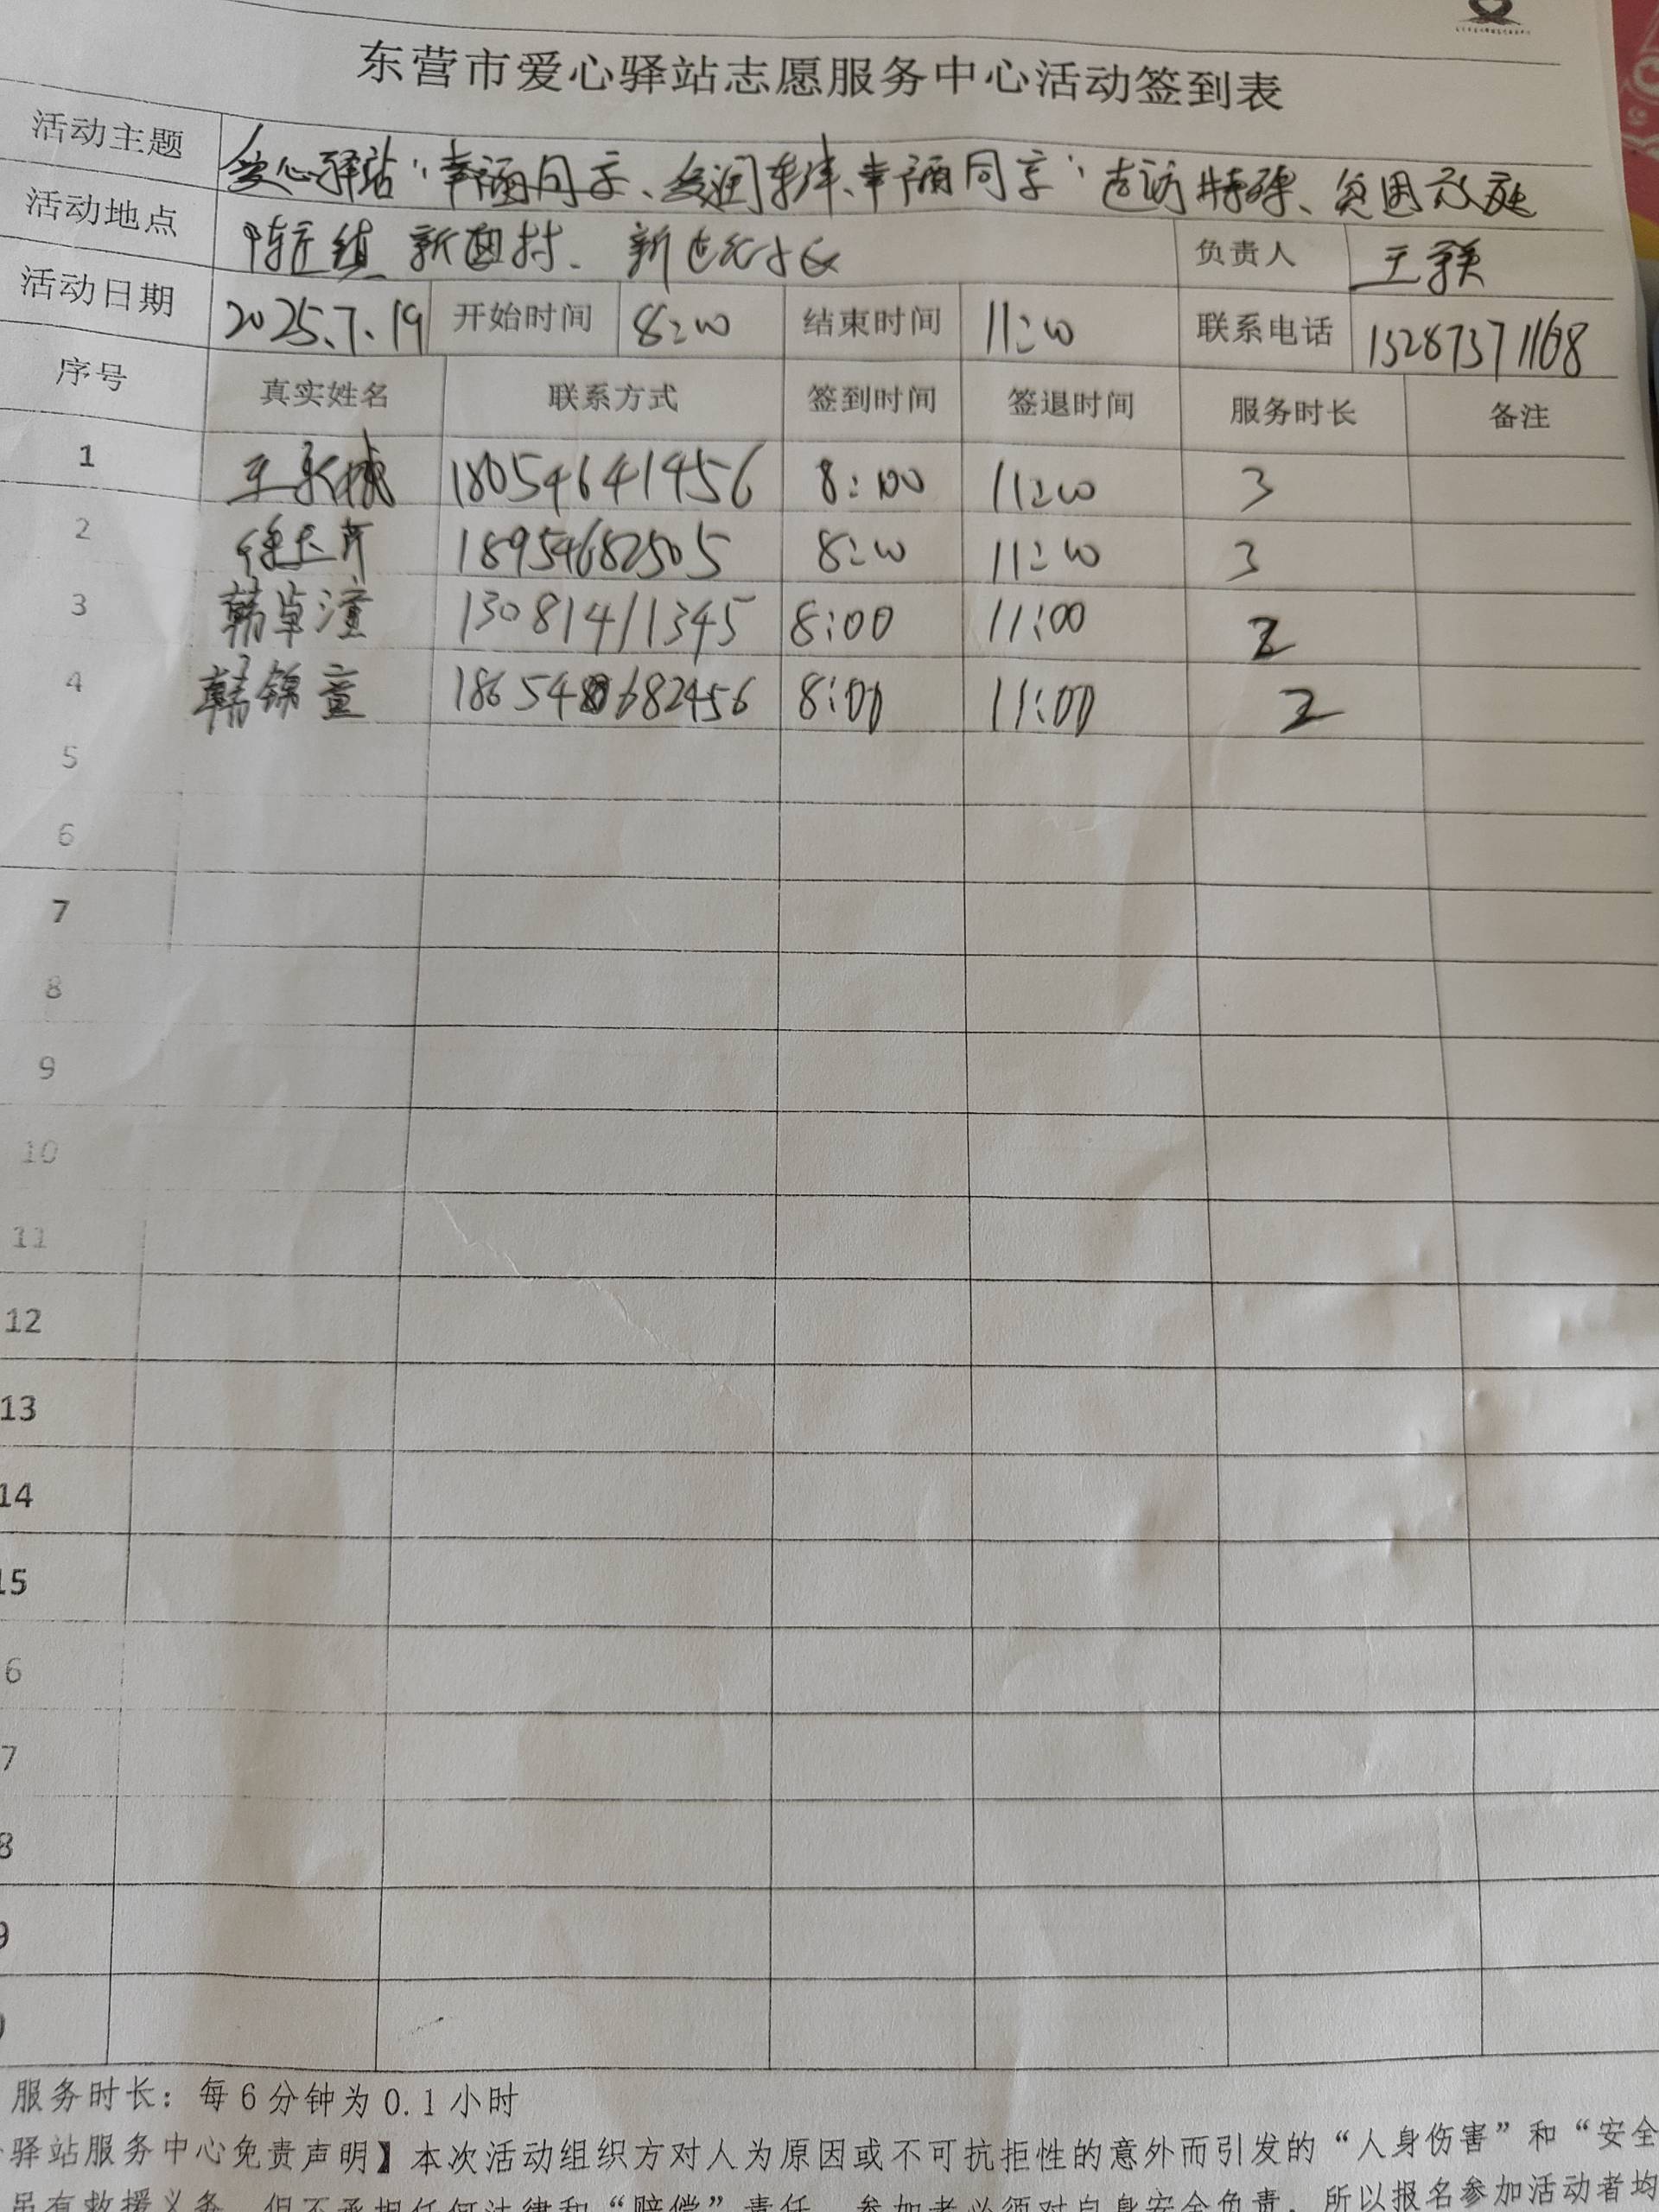 东营市爱心驿站志愿服务中心活动签到表
活动主题 爱心驿站"幸福同享、爱润东津、幸福同享"走访特殊、贫困家庭
活动地点 陈庄镇 新西村、新 负责人 王
活动日期 2025.7.19 开始时间 8:00 结束时间 11:00 联系电话 13287371168
序号 真实姓名 联系方式 签到时间 签退时间 服务时长 备注
1 王永 18054641456 8:00 11:00 3
2 18954682505 8:00 11:00 3
3 韩卓潼 13081411345 8:00 11:00 2
4 韩锦童 186540682456 8:00 11:00 2
5
6
7
8
9
10
11
12
13
14
15
6
7
8
9
服务时长：每6分钟为0.1小时
驿站服务中心免责声明】本次活动组织方对人为原因或不可抗拒性的意外而引发的“人身伤害”和“安全
员有救援义务，但不承担任何法律和“赔偿”责任。参加者必须对自身安全负责，所以报名参加活动者均